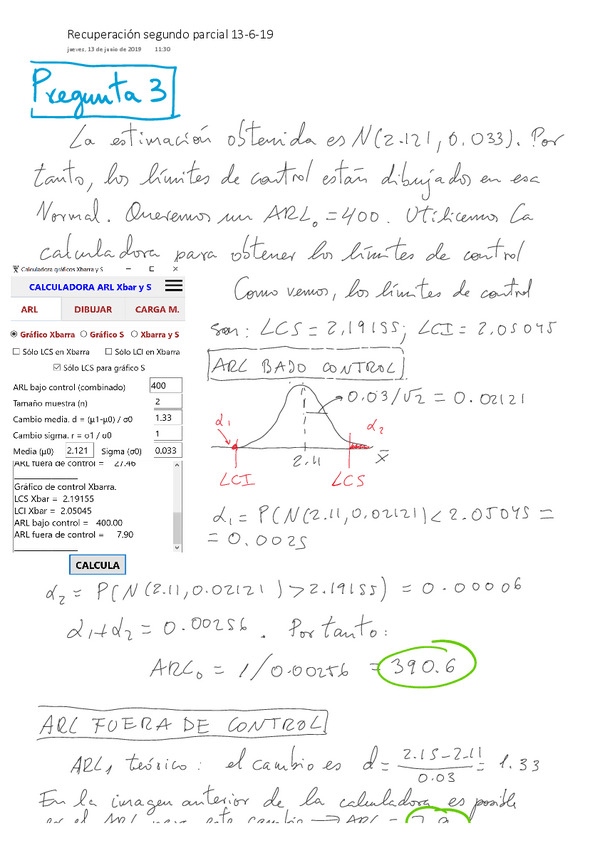 Recuperación segundo parcial 13-6-19
jueves, 13 de junio de 2019 11:30
Pregunta 3
La estimación obtenida es N(2.121, 0.033). Por
tanto, los límites de control están dibujados en esa
Normal. Queremos un ARL₀ = 400. Utilicemos la
calculadora para obtener los límites de control
Calculadora gráficos Xbarra y S
CALCULADORA ARL Xbar y S
ARL DIBUJAR CARGA M.
Gráfico Xbarra Gráfico S Xbarra y S
Sólo LCS en Xbarra Sólo LCI en Xbarra
Sólo LCS para gráfico S
ARL bajo control (combinado) 400
Tamaño muestra (n) 2
Cambio media. d = (μ1-μ0) / σ0 1.33
Cambio sigma. r = σ1 / σ0 1
Media (μ0) 2.121 Sigma (σ0) 0.033
ARL fuera de control = 27.46
Gráfico de control Xbarra.
LCS Xbar = 2.19155
LCI Xbar = 2.05045
ARL bajo control = 400.00
ARL fuera de control = 7.90
CALCULA
Como vemos, los límites de control
son: LCS = 2.19155; LCI = 2.05045
ARL BAJO CONTROL
0.03/√2 = 0.02121
α₁
α₂
2.11
x̄
LCI
LCS
α₁ = P(N(2.11, 0.02121) < 2.05045 =
= 0.0025
α₂ = P(N(2.11, 0.02121) > 2.19155) = 0.00006
α₁+α₂ = 0.00256. Por tanto:
ARL₀ = 1/0.00256 = 390.6
ARL FUERA DE CONTROL
ARL₁ teórico: el cambio es d = (2.15-2.11)/0.03 = 1.33
En la imagen anterior de la calculadora es posible